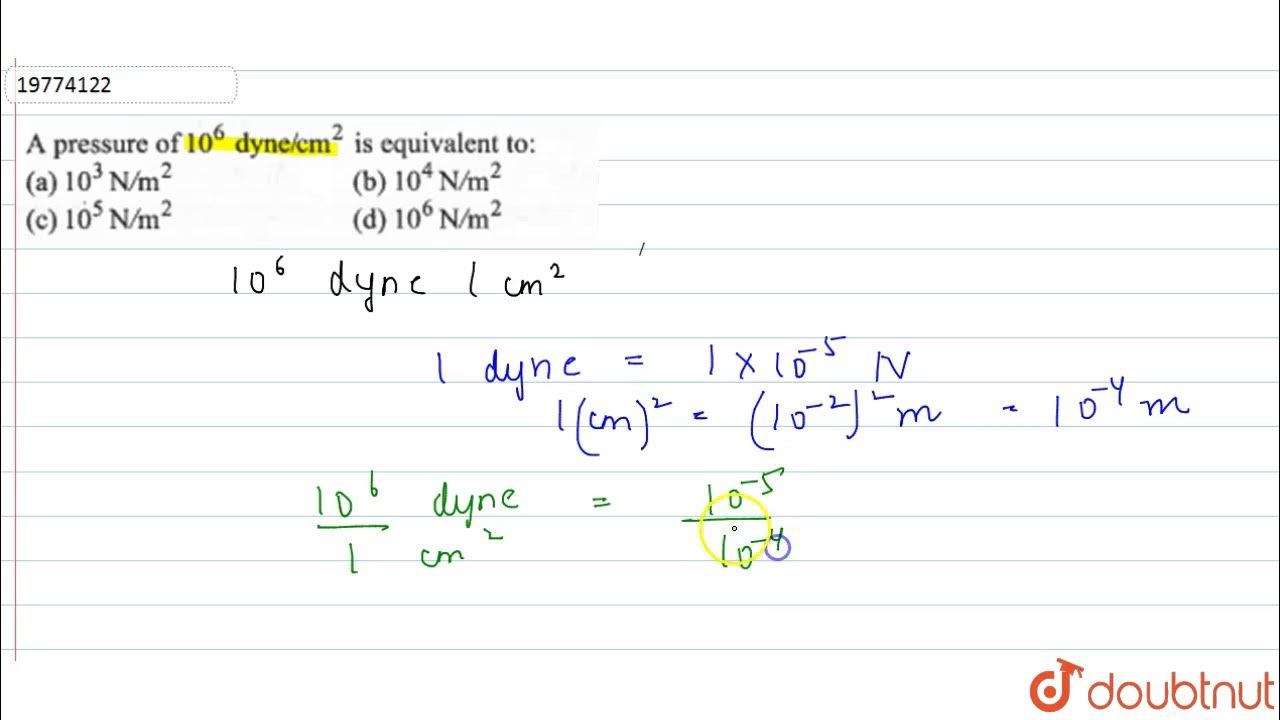 19774122
A pressure of 10⁶ dyne/cm² is equivalent to:
(a) 10³ N/m² (b) 10⁴ N/m²
(c) 10⁵ N/m² (d) 10⁶ N/m²
10⁶ dyne / cm²
1 dyne = 1 × 10⁻⁵ N
1(cm)² = (10⁻²)² m = 10⁻⁴ m
10⁶ dyne = 10⁻⁵
1 cm² 10⁻⁴
doubtnut